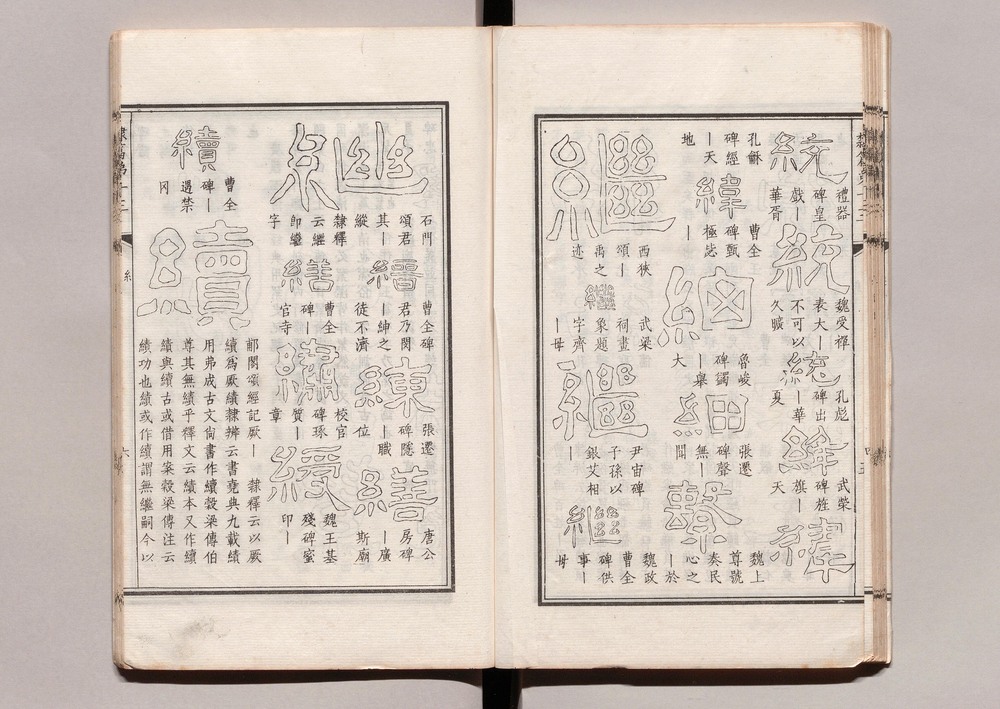 統
禮器
碑皇
戲｜
華胥
統
魏受禪
表大｜
不可以
久曠
統
孔彪
碑出
｜華
夏
絳
武榮
碑旌
旗｜
天
緯
孔龢
碑經
｜天
地
緯
曹全
碑甄
極毖
｜
細
魯峻
碑蠲
｜舉
大
細
張遷
碑聲
無｜
聞
繫
魏上
尊號
奏民
心之
｜於
魏政
繼
西狹
頌｜
禹之
迹
繼
武梁
祠畫
象題
字齊
｜母
繼
尹宙碑
子孫以
銀艾相
｜
繼
曹全
碑供
事｜
母
石門
頌君
其｜
縱
隸釋
云繼
即繼
字
曹全碑
君乃閔
｜紳之
徒不濟
練
張遷
碑隱
｜職
位
繕
唐公
房碑
｜廣
斯廟
繕
曹全
碑｜
官寺
繡
校官
碑琢
質｜
章
綬
魏王基
殘碑蜜
印｜
續
曹全
碑｜
遇禁
冈
續
郙閣頌經記厥｜ 隸釋云以厥
續爲厥績隸辨云書堯典九載績
用弗成古文尚書作續穀梁傳伯
尊其無績乎釋文云績本又作續
績與續古或借用案穀梁傳注云
績功也績或作續謂無繼嗣今以
糸
六